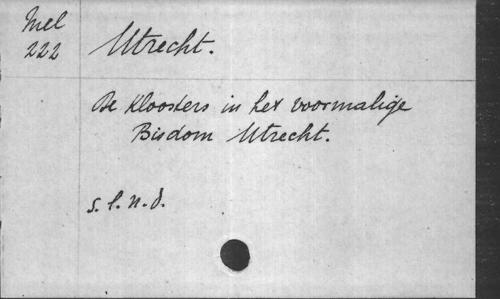 Mel
222
Utrecht.
De Kloosters in het voormalige
Bisdom Utrecht.
s.l.n.d.